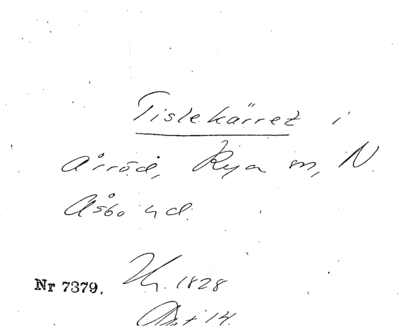 Tislekärret i
Årröd, Rya sn, N.
Åsbo hd.
Nr 7379. Hr. 1828
Akt 14.